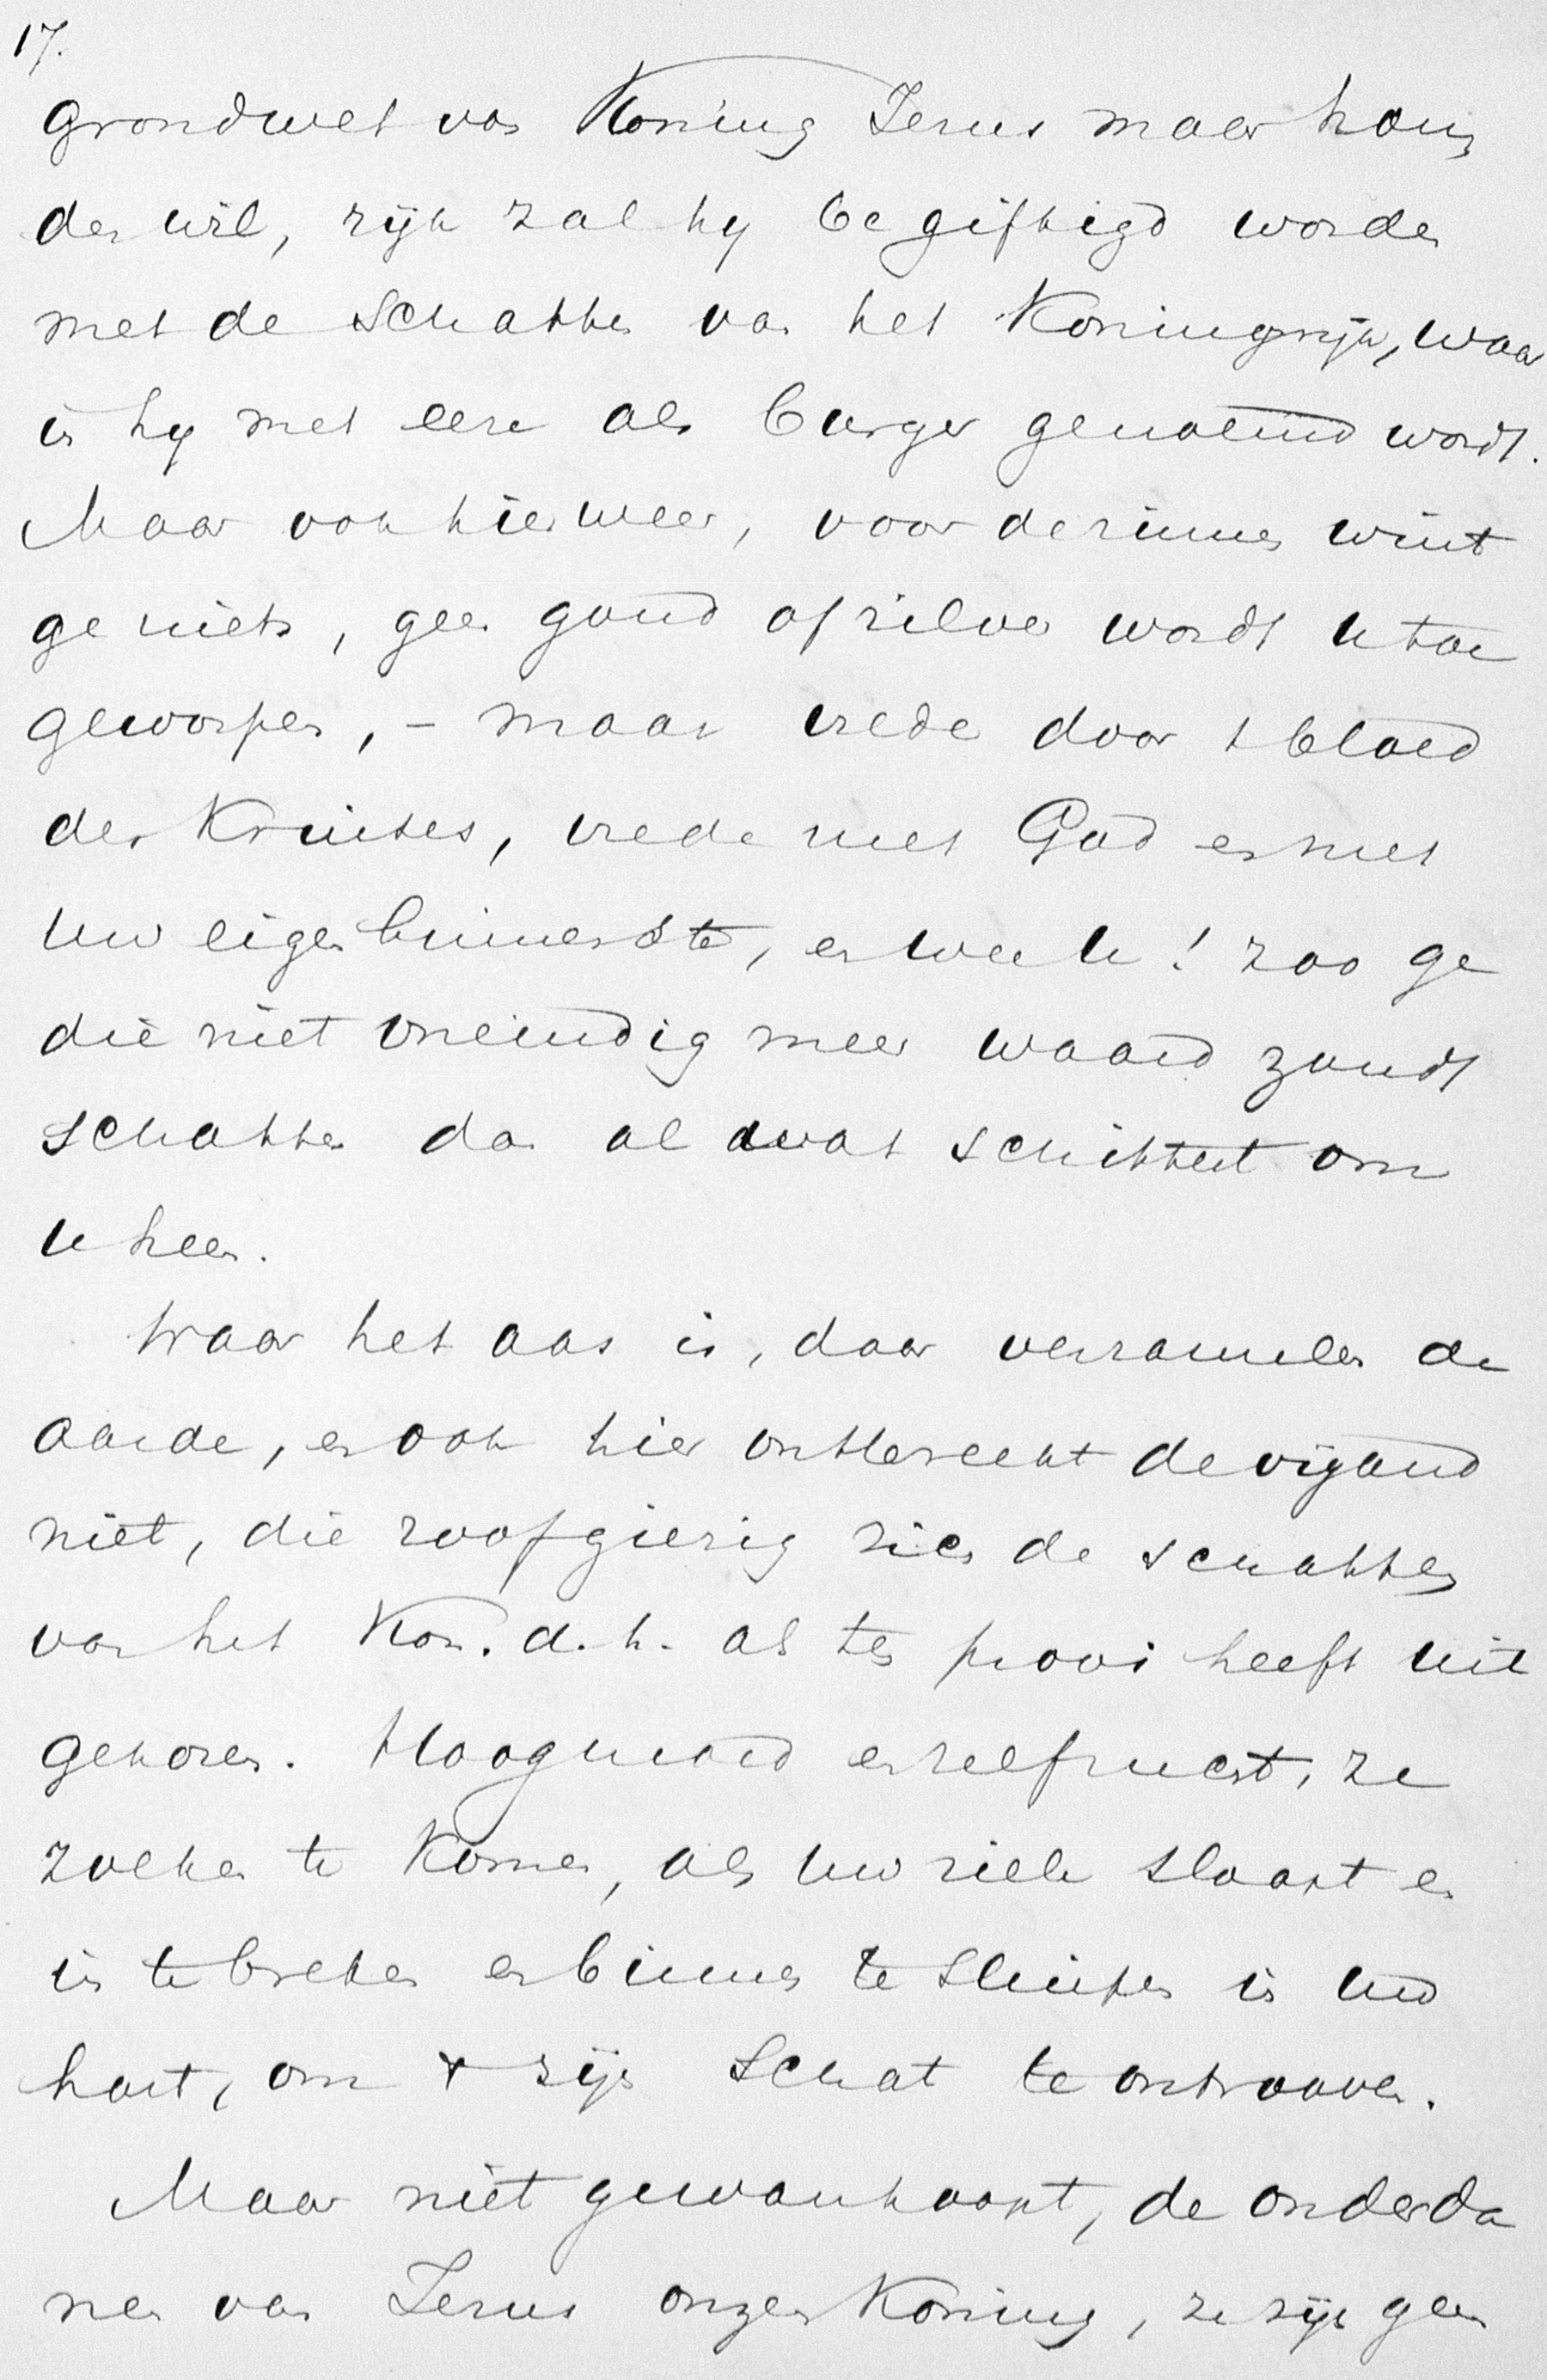 17.
grondwet van Koning Jezus maar hou-
den wil, rijk zal hy begiftigd worden
met de schatten van het Koningrijk, waar
in hy met eere als burger genoemd wordt.
Maar ook hier weer, voor de zinnen wint
ge niets, geen goud of zilver wordt u toe
geworpen, - maar vrede door 't bloed
des Kruises, vrede met God en met
uw eigen binnenste, en wee u! zoo ge
die niet oneindig meer waard zoudt
schatten dan al wat schittert om
u heen.
Waar het aas is, daar verzamelen de
aarde, en ook hier ontbreekt de vijand
niet, die roofgierig zich de schatten
van het Kon. d. h. als ten prooi heeft uit
gekozen. Hoogmoed en zelfzucht, ze
zoeken te komen, als uw ziele slaapt en
in te breken en binnen te sluipen in uw
hart, om 't zijn schat te ontrooven.
Maar niet gewanhoopt, de onderda
nen van Jezus onzen Koning, ze zijn geen